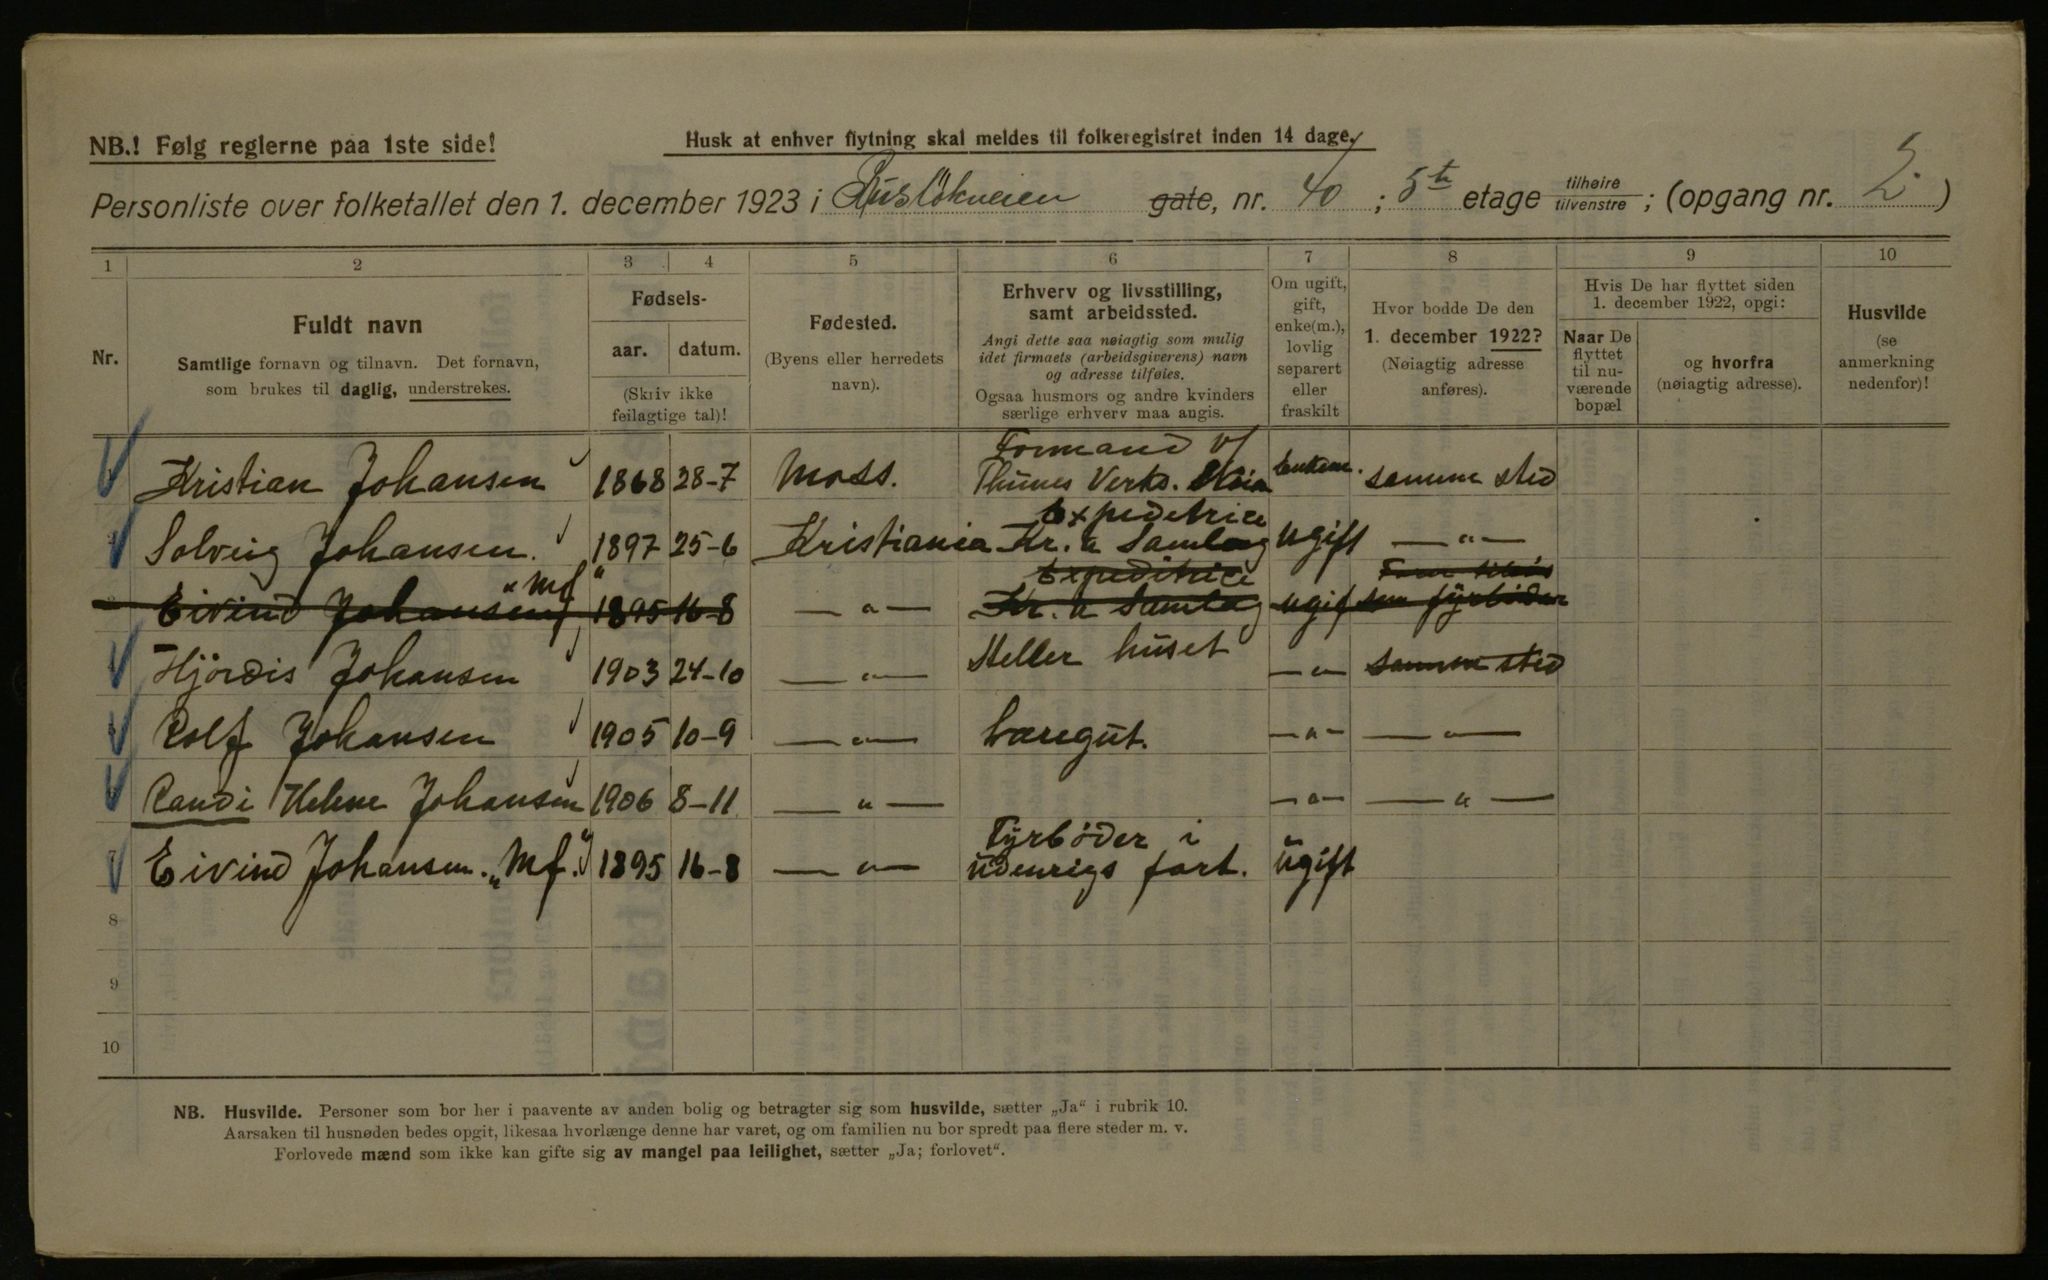 NB.! Følg reglerne paa 1ste side!
Husk at enhver flytning skal meldes til folkeregistret inden 14 dage.
Personliste over folketallet den 1. december 1923 i Rusløkveien gate, nr. 40 ; 5te etage tilhøire tilvenstre ; (opgang nr. 2. )
1 2 3 4 5 6 7 8 9 10
Nr.
Fuldt navn
Samtlige fornavn og tilnavn. Det fornavn,
som brukes til daglig, understrekes.
Fødsels-
aar. datum.
(Skriv ikke
feilagtige tal)!
Fødested.
(Byens eller herredets
navn).
Erhverv og livsstilling,
samt arbeidssted.
Angi dette saa nøiagtig som mulig
idet firmaets (arbeidsgiverens) navn
og adresse tilføies.
Ogsaa husmors og andre kvinders
særlige erhverv maa angis.
Om ugift,
gift,
enke(m.),
lovlig
separert
eller
fraskilt
Hvor bodde De den
1. december 1922?
(Nøiagtig adresse
anføres).
Hvis De har flyttet siden
1. december 1922, opgi:
Naar De
flyttet
til nu-
værende
bopæl
og hvorfra
(nøiagtig adresse).
Husvilde
(se
anmerkning
nedenfor)!
Formand v/
Kristian Johansen 1868 28-7 Moss. Thunes Verks. Enkem. samme sted
Expeditrice
Solveig Johansen. 1897 25-6 Kristiania Kr. a Samlag ugift — " —
"Mf" Expeditrice
Eivind Johansen 1895 16-8 — " — Kr. a Samlag ugift som fyrbøder
Hjørdis Johansen 1903 24-10 — " — Steller huset — " — samme sted
5 Rolf Johansen 1905 10-9 — " — Læregut. — " — — " —
Randi Helene Johansen 1906 8-11 — " — — " — — " —
Fyrbøder i
7 Eivind Johansen. "Mf." 1895 16-8 — " — udenrigs fart. ugift
8
9
10
NB. Husvilde. Personer som bor her i paavente av anden bolig og betragter sig som husvilde, sætter „Ja“ i rubrik 10.
Aarsaken til husnøden bedes opgit, likesaa hvorlænge denne har varet, og om familien nu bor spredt paa flere steder m. v.
Forlovede mænd som ikke kan gifte sig av mangel paa leilighet, sætter „Ja; forlovet“.